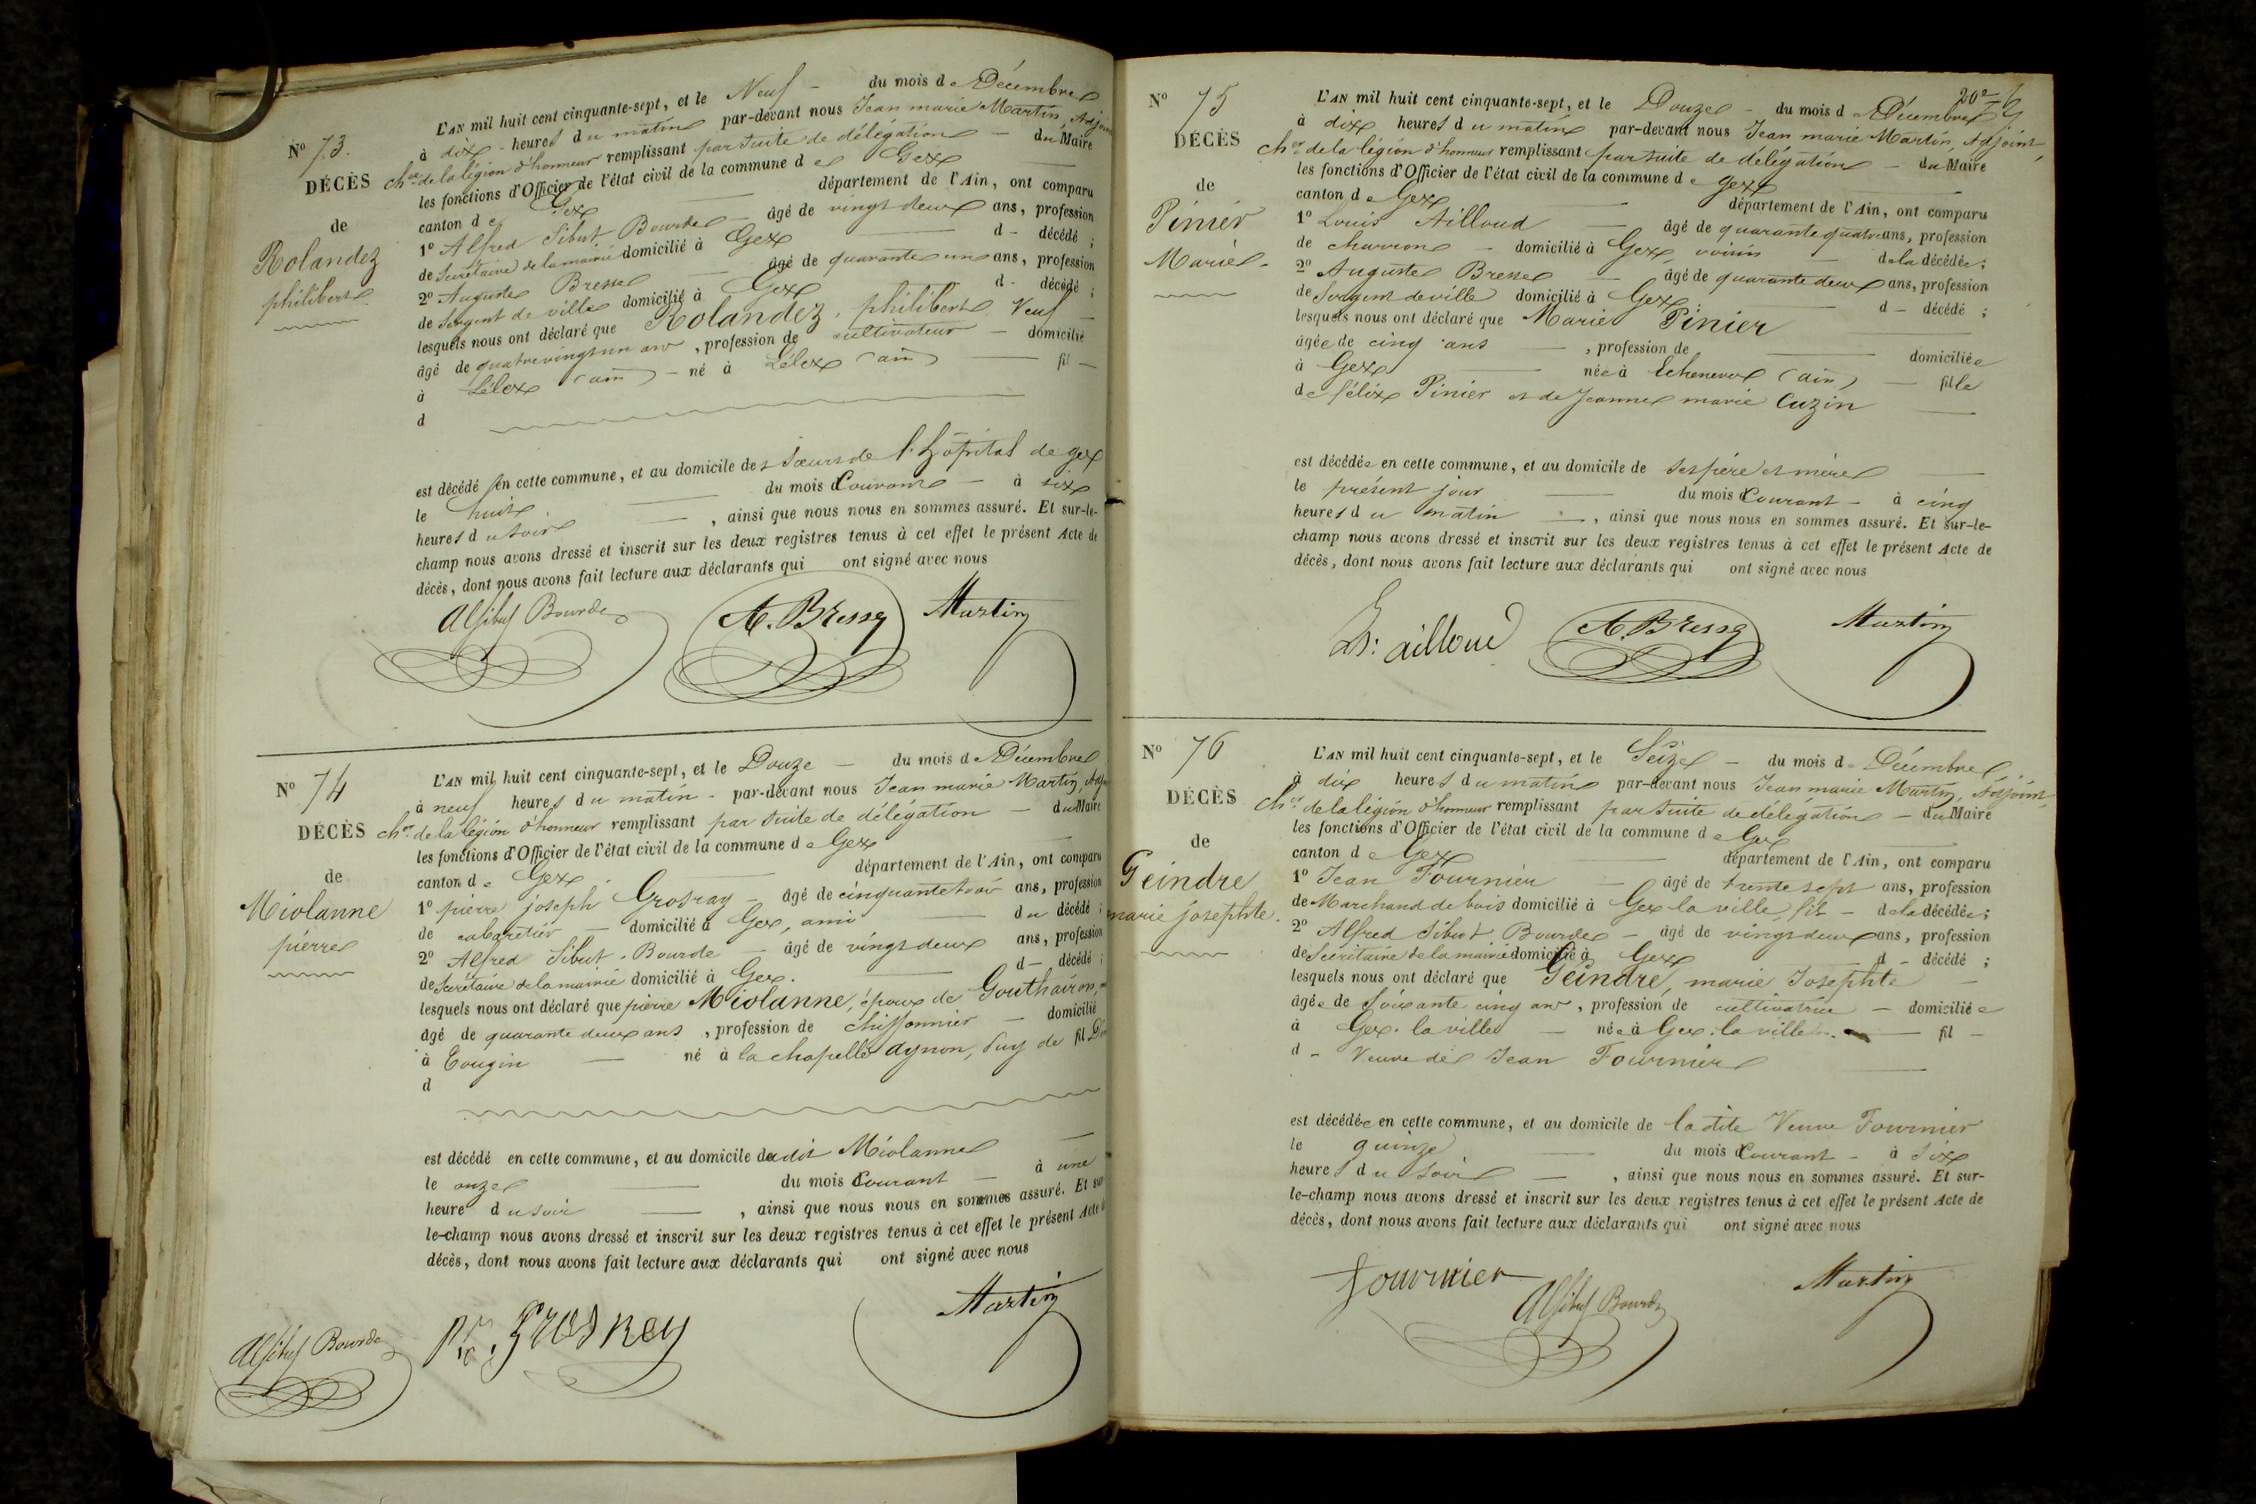 L'AN mil huit cent cinquante-sept, et le Neuf - du mois de Décembre
Nº 73.
à dix - heures du matin par-devant nous Jean marie Martin, Adjoint
DÉCÈS
cher de la légion d'honneur remplissant par suite de délégation - du Maire
les fonctions d'Officier de l'état civil de la commune de Gex
canton de Gex département de l'Ain, ont comparu
de
1º Alfred Sibut Bourde - âgé de vingt deux ans, profession
Rolandez
de Secrétaire de la mairie domicilié à Gex d - décédé ;
philibert
2º Auguste Bresse âgé de quarante un ans, profession
de Sergent de ville domicilié à Gex d - décédé ;
lesquels nous ont déclaré que Rolandez, philibert, Veuf -
âgé de quatrevingt un ans, profession de cultivateur - domicilié
à Lélex (ain) - né à Lélex (ain) fil -
d
est décédé en cette commune, et au domicile des soeurs de l'hôpital de gex
le huit du mois Courant - à six
heures du soir , ainsi que nous nous en sommes assuré. Et sur-le-
champ nous avons dressé et inscrit sur les deux registres tenus à cet effet le présent Acte de
décès, dont nous avons fait lecture aux déclarants qui ont signé avec nous
Al Sibut Bourde A. Bresse Martin
L'AN mil huit cent cinquante-sept, et le Douze - du mois de Décembre
Nº 74
à neuf heures du matin - par-devant nous Jean marie Martin, Adj
DÉCÈS
cher de la légion d'honneur remplissant par suite de délégation - du Maire
les fonctions d'Officier de l'état civil de la commune de Gex
de
canton de Gex département de l'Ain, ont comparu
Miolanne
1º pierre joseph Grosray - âgé de cinquante trois ans, profession
de cabaretier - domicilié à Gex, ami du décédé ;
pierre
2º Alfred Sibut-Bourde - âgé de vingt deux ans, profession
de Secrétaire de la mairie domicilié à Gex. d - décédé ;
lesquels nous ont déclaré que pierre Miolanne, époux de
âgé de quarante deux ans, profession de chiffonnier - domicilié
à Tougin - né à la chapelle agnon, Puy de fil
d
est décédé en cette commune, et au domicile dudit Miolanne
le onze du mois Courant - à une
heure du soir , ainsi que nous nous en sommes assuré. Et sur
le-champ nous avons dressé et inscrit sur les deux registres tenus à cet effet le présent Acte
décès, dont nous avons fait lecture aux déclarants qui ont signé avec nous
Al Sibut Bourde Martin
202
Nº 75
L'AN mil huit cent cinquante-sept, et le Douze - du mois de Décembre
DÉCÈS
à dix heures du matin par-devant nous Jean marie Martin, Adjoint,
cher de la légion d'honneur remplissant par suite de délégation - du Maire
les fonctions d'Officier de l'état civil de la commune de gex
de
canton de Gex département de l'Ain, ont comparu
Pinier
1º Louis Ailloud - âgé de quarante quatre ans, profession
de charron - domicilié à Gex, voisin - de la décédée ;
Marie
2º Auguste Bresse - âgé de quarante deux ans, profession
de Sergent de ville domicilié à Gex d - décédé ;
lesquels nous ont déclaré que Marie Pinier
âgée de cinq ans , profession de domiciliée
à Gex née à Echenevex (ain) - fille
de félix Pinier et de Jeanne marie Cuzin
est décédée en cette commune, et au domicile de ses père et mère
le présent jour du mois Courant - à cinq
heures du matin -, ainsi que nous nous en sommes assuré. Et sur-le-
champ nous avons dressé et inscrit sur les deux registres tenus à cet effet le présent Acte de
décès, dont nous avons fait lecture aux déclarants qui ont signé avec nous
Ls: ailloud A. Bresse Martin
Nº 76
L'AN mil huit cent cinquante-sept, et le Seize - du mois de Décembre
à dix heures du matin par-devant nous Jean marie Martin, Adjoint
DÉCÈS
cher de la légion d'honneur remplissant par suite de délégation - du Maire
les fonctions d'Officier de l'état civil de la commune de Gex
de
canton de Gex département de l'Ain, ont comparu
Geindre
1º Jean Fournier - âgé de trente sept ans, profession
de Marchand de bois domicilié à Gex la ville, fils - de la décédée ;
marie josephte.
2º Alfred Sibut Bourde - âgé de vingt deux ans, profession
de Secrétaire de la mairie domicilié à Gex d - décédé ;
lesquels nous ont déclaré que Geindre, marie Josephte -
âgée de soixante cinq ans, profession de cultivatrice - domiciliée
à Gex-la ville - née à Gex-la ville fil -
d - Veuve de Jean Fournier
est décédée en cette commune, et au domicile de la dite Veuve Fournier
le quinze du mois Courant - à Six
heures du soir -, ainsi que nous nous en sommes assuré. Et sur-
le-champ nous avons dressé et inscrit sur les deux registres tenus à cet effet le présent Acte de
décès, dont nous avons fait lecture aux déclarants qui ont signé avec nous
fournier Al Sibut Bourde Martin